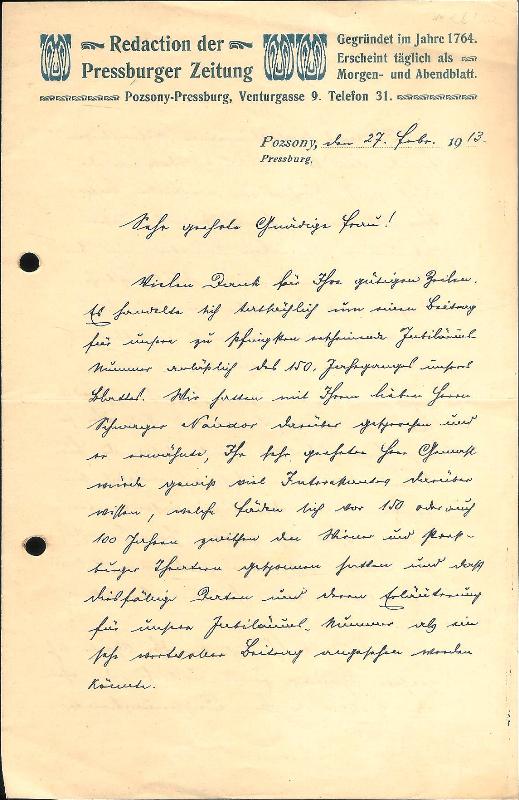 Redaction der
Pressburger Zeitung
Gegründet im Jahre 1764.
Erscheint täglich als
Morgen- und Abendblatt.
Pozsony-Pressburg, Venturgasse 9. Telefon 31.
Pozsony, den 27. Febr. 1913.
Pressburg,
Sehr geehrte Gnädige Frau!
Vielen Dank für Ihre gütigen Zeilen.
Es handelte sich tatsächlich um einen Beitrag
für unsere zu Pfingsten erscheinende Jubiläums-
Nummer anläßlich des 150. Jahrganges unseres
Blattes. Wir hatten mit Ihrem lieben Herrn
Schwager Nándor darüber gesprochen und
er erwähnte, Ihr sehr geehrter Herr Gemahl
würde gewiß viel Interessantes darüber
wissen, welche Fäden sich vor 150 oder auch
100 Jahren zwischen den Wiener und Press-
burger Theatern gesponnen hatten und daß
diesfällige Daten und deren Erläuterung
für unsere Jubiläums-Nummer als ein
sehr wertvoller Beitrag angesehen werden
könnte.